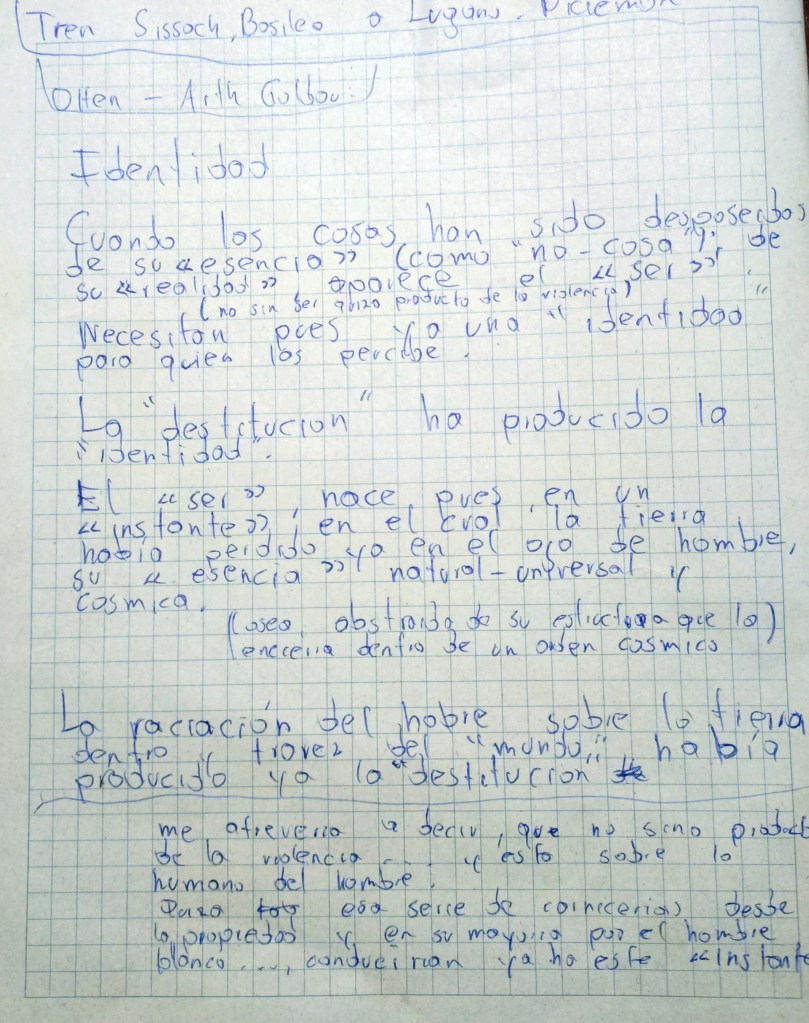 Tren Sissach, Basilea a Lugano. Diciemb
Olten – Arth Goldau
Identidad
Cuando las cosas han sido desposeidas
de su «esencia» (como "no-cosa"), de
su «realidad», aparece el «ser».
(no sin ser quiza producto de la violencia)
Necesitan pues ya una "identidad"
para quien las percibe.
La "destitucion" ha producido la
"identidad".
El «ser» nace, pues, en un
«instante», en el cual la tierra
habia perdido ya en el ojo de hombre,
su «esencia» natural-universal y
cosmica.
(osea, abstraida de su estructura que la)
(encerra dentro de un orden cosmico
La raciación del hobre sobre la tierra
dentro y travez del "mundo", había
producido ya la "destitucion
me atreveria a decir, que no sino product
de la violencia .... y esto sobre lo
humano del hombre.
Para esa serie de carnicerias desde
la propiedad y en su mayoria por el hombre
blanco ...., conduciran ya ha este «instante